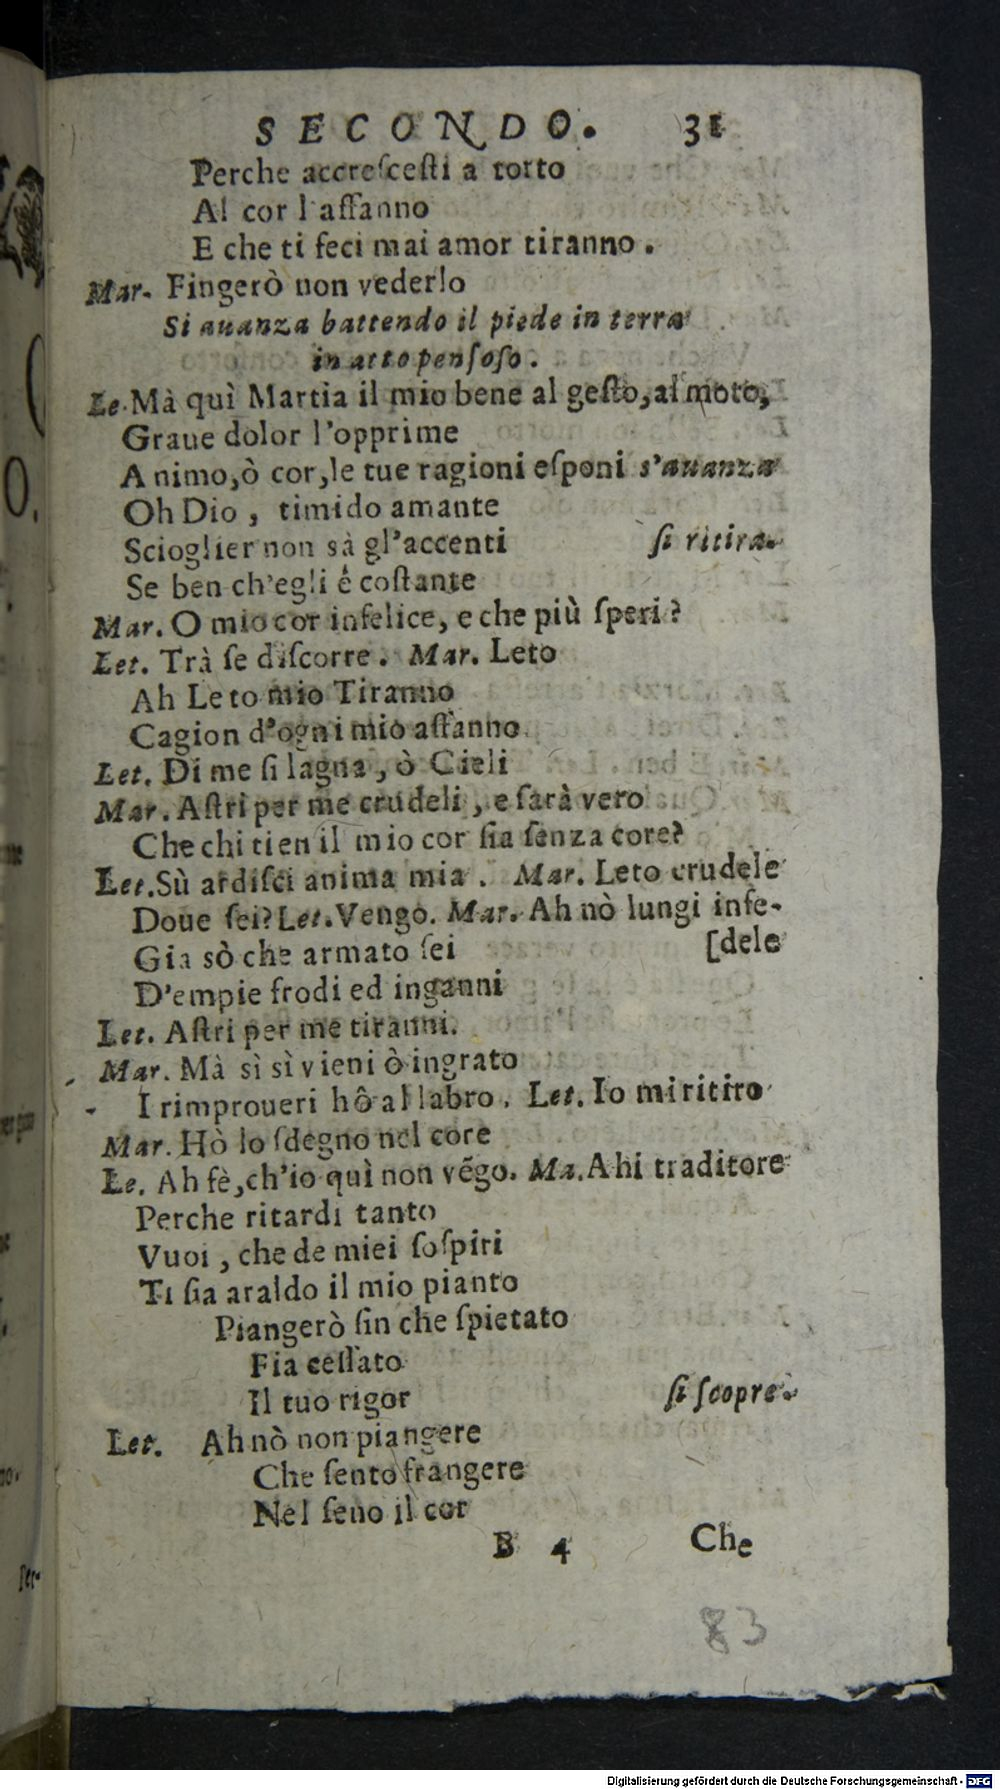 SECONDO. 31
Perche accreſceſti a torto
Al cor l'affanno
E che ti feci mai amor tiranno.
Mar. Fingerò non vederlo
Si auanza battendo il piede in terra
in atto penſoſo.
Le. Mà quì Martia il mio bene al geſto, al moto,
Graue dolor l'opprime
Animo, ò cor, le tue ragioni eſponi s'auanza
Oh Dio, timido amante
Scioglier non sà gl'accenti ſi ritira.
Se ben ch'egli é coſtante
Mar. O mio cor infelice, e che più ſperi?
Let. Trà ſe diſcorre. Mar. Leto
Ah Leto mio Tiranno
Cagion d'ogni mio affanno
Let. Di me ſi lagna, ò Cieli
Mar. Aſtri per me crudeli, e ſarà vero
Che chi tien il mio cor ſia ſenza core?
Let. Sù ardiſci anima mia. Mar. Leto crudele
Doue ſei? Let. Vengo. Mar. Ah nò lungi infe-
Gia sò che armato ſei [dele
D'empie frodi ed inganni
Let. Aſtri per me tiranni.
Mar. Mà sì sì vieni ò ingrato
I rimproueri hô al labro. Let. Io mi ritiro
Mar. Hò lo ſdegno nel core
Le. Ah fè, ch'io quì non vẽgo. Ma. Ahi traditore
Perche ritardi tanto
Vuoi, che de miei ſoſpiri
Ti ſia araldo il mio pianto
Piangerò ſin che ſpietato
Fia ceſſato
Il tuo rigor ſi ſcopre.
Let. Ah nò non piangere
Che ſento frangere
Nel ſeno il cor
B 4 Che
83
Digitalisierung gefördert durch die Deutsche Forschungsgemeinschaft - DFG